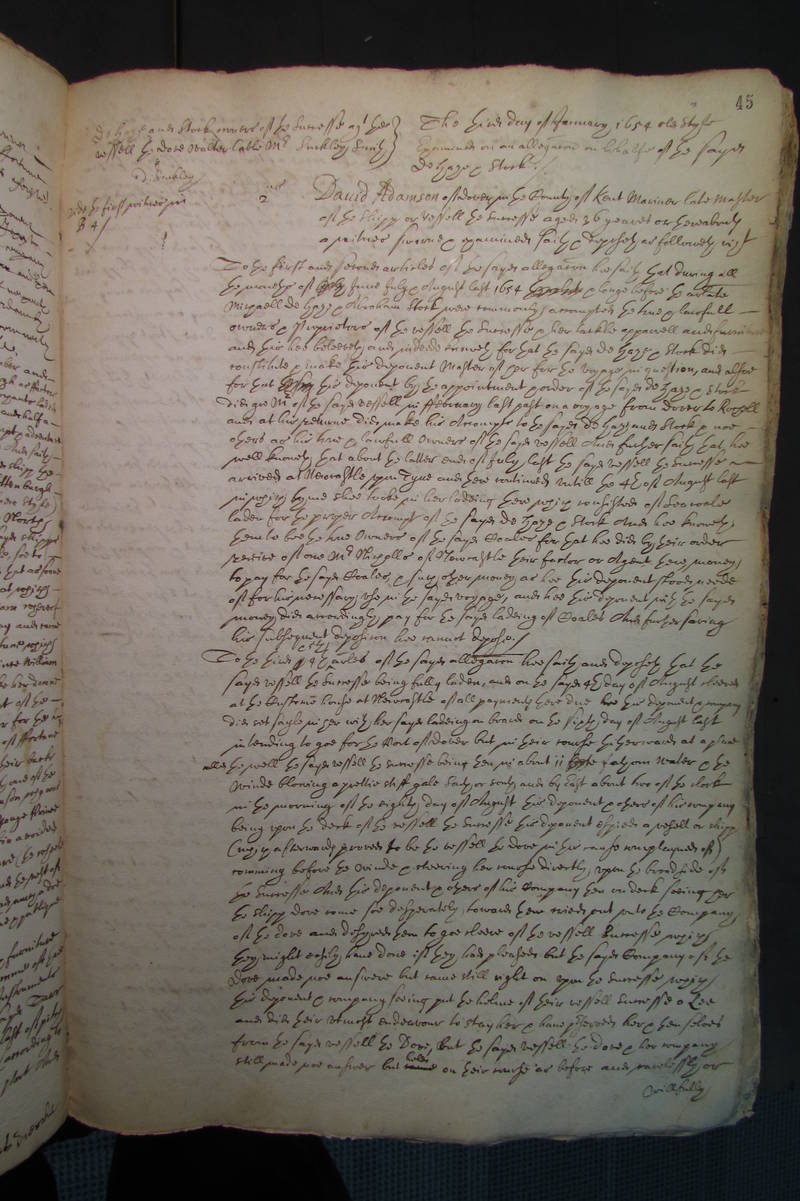 45
De Haze and Stock owners of the Successe agt the}
vessell the dove Walter Cable Mr Suckley Smith}
The third day of January 1654 old style
Examined on an allegation on behalfe of the sayd
De Haze & Stock.
D. Suckley
2us
David Adamson of dover in the County of Kent Mariner late Master
of the shipp or vessell the Successe aged 36 yeares or thereabouts
a witnes sworne & examined saith & deposeth as followeth vizt
To the first and second articles of the sayd allegation hee saith that during all
the moneths of June July & August last 1654 & longe before the arlate
Michaell de Haze & Abraham Stock were commonly accompted the true & lawfull
owners & Proprietors of the vessell the Successe & her tackle apparell and furniture
and this hee beleeveth and indeede knoweth for that the sayd de Haze & Stock did
constitute & make this deponent Master of her for the voyage in question, and alsoe
for that this deponent by the appointment & order of the sayd de Haze & Stock
did goe Mr of the sayd vessell in ffebruary last past on a voyage from dover to
and at his returne did make his Accompts to the sayd de Haze and Stock & noe
others as the true & lawfull Owners of the sayd vessell And further saith that hee
well knoweth that about the latter end of July last the sayd vessell the Successe
arrived at Newcastle upon Tyne and there continued untill the 4th of August last
in which tyme shee tooke in her ladeing there which consisted of Seacoales
laden for the proper Accompt of the sayd de Haze & Stock And hee knoweth
them to bee the true Owners of the sayd Coales for that hee did by their order
receive of one Mr Nicholls of Newcastle their factor or Agent there money
to pay for the sayd Coales, & such other money as hee this deponent stood in neede
of for his necessary use in the sayd voyage, and hee this deponent with the sayd
money did accordingly pay for the sayd ladeing of Coales And further saving
his subsequent deposition hee cannot depose./
To the third & 4th arles of the sayd allegation hee saith and deposeth that the
sayd vessell the Successe being fully laden, and on the sayd 4th day of August cleered
at the Custome house at Newcastle of all payments there due hee this deponent & company
did set sayle in her with her sayd ladeing on board on the sixth day of August last
intending to goe for the Port of dover but in their course thitherwards at a place
called the well the sayd vessell the Successe being then in about 11 fathom water & the
winde blowing a prettie stiff gale South or south and by East about two of the clock
in the morning of the eighth day of August this deponent & others of his company
being upon the deck of the vessell the Successe this deponent espied a vessell or shipp
(which afterwards proved to be the vessell the dove in this cause complayned of)
comming before the winde & steering her course directly upon the broadside of
the Successe And this deponent & others of his Company then on deck seeing her
the shipp dove come soe desperately towards them cried out unto the Company
of the dove and desyred them to goe cleere of the vessell Successe which
they might easily have done if they had pleased but the sayd Company of the
Dove made noe answere but came still right on upon the Successe which
this deponent & company seeing put the helme of their vessell Successe a Lee
and did their utmost endeavour to stay her & have preserved her & themselves
from the sayd vessell the Dove, But the sayd vessell the dove & her company
still made noe answer but held on their course as before and carelessly or
willfully